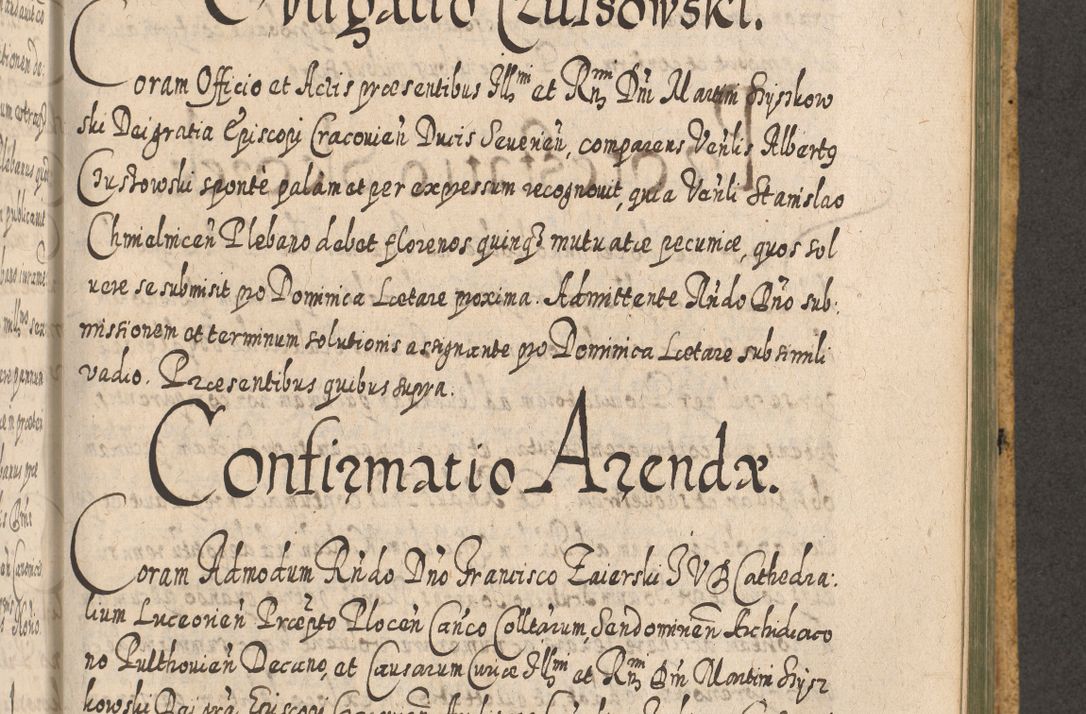 Obligatio Czusowski.
Coram Officio et Actis præsentibus Illmi et Rmi Dni Martini Szyszkow
ski Dei gratia Episcopi Cracovien Ducis Severien, comparens Venlis Albertus
Czustowski sponte palam et per expressum recognovit, quia Venli Stanislao
Chmielnicen Plebano debet florenos quinq3 mutuatæ pecuniæ, quos sol
vere se submisit pro Dominica Lætare proxima. Admittente Rndo Dno sub-
missionem et terminum solutionis assignante pro Dominica Lætare sub simili
vadio. Præsentibus quibus supra.
Confirmatio Arendæ.
Coram Admodum Rndo Dno Francisco Zaierski JVD Cathedra-
lium Luceorien Præpto Plocen Canco Colltarum Sendomirien Archidiaco
no Pulthovien Decano, et Causarum Curiæ Illmi et Rmi Dni Martini Szysz
kowski Dei gra Episcopi